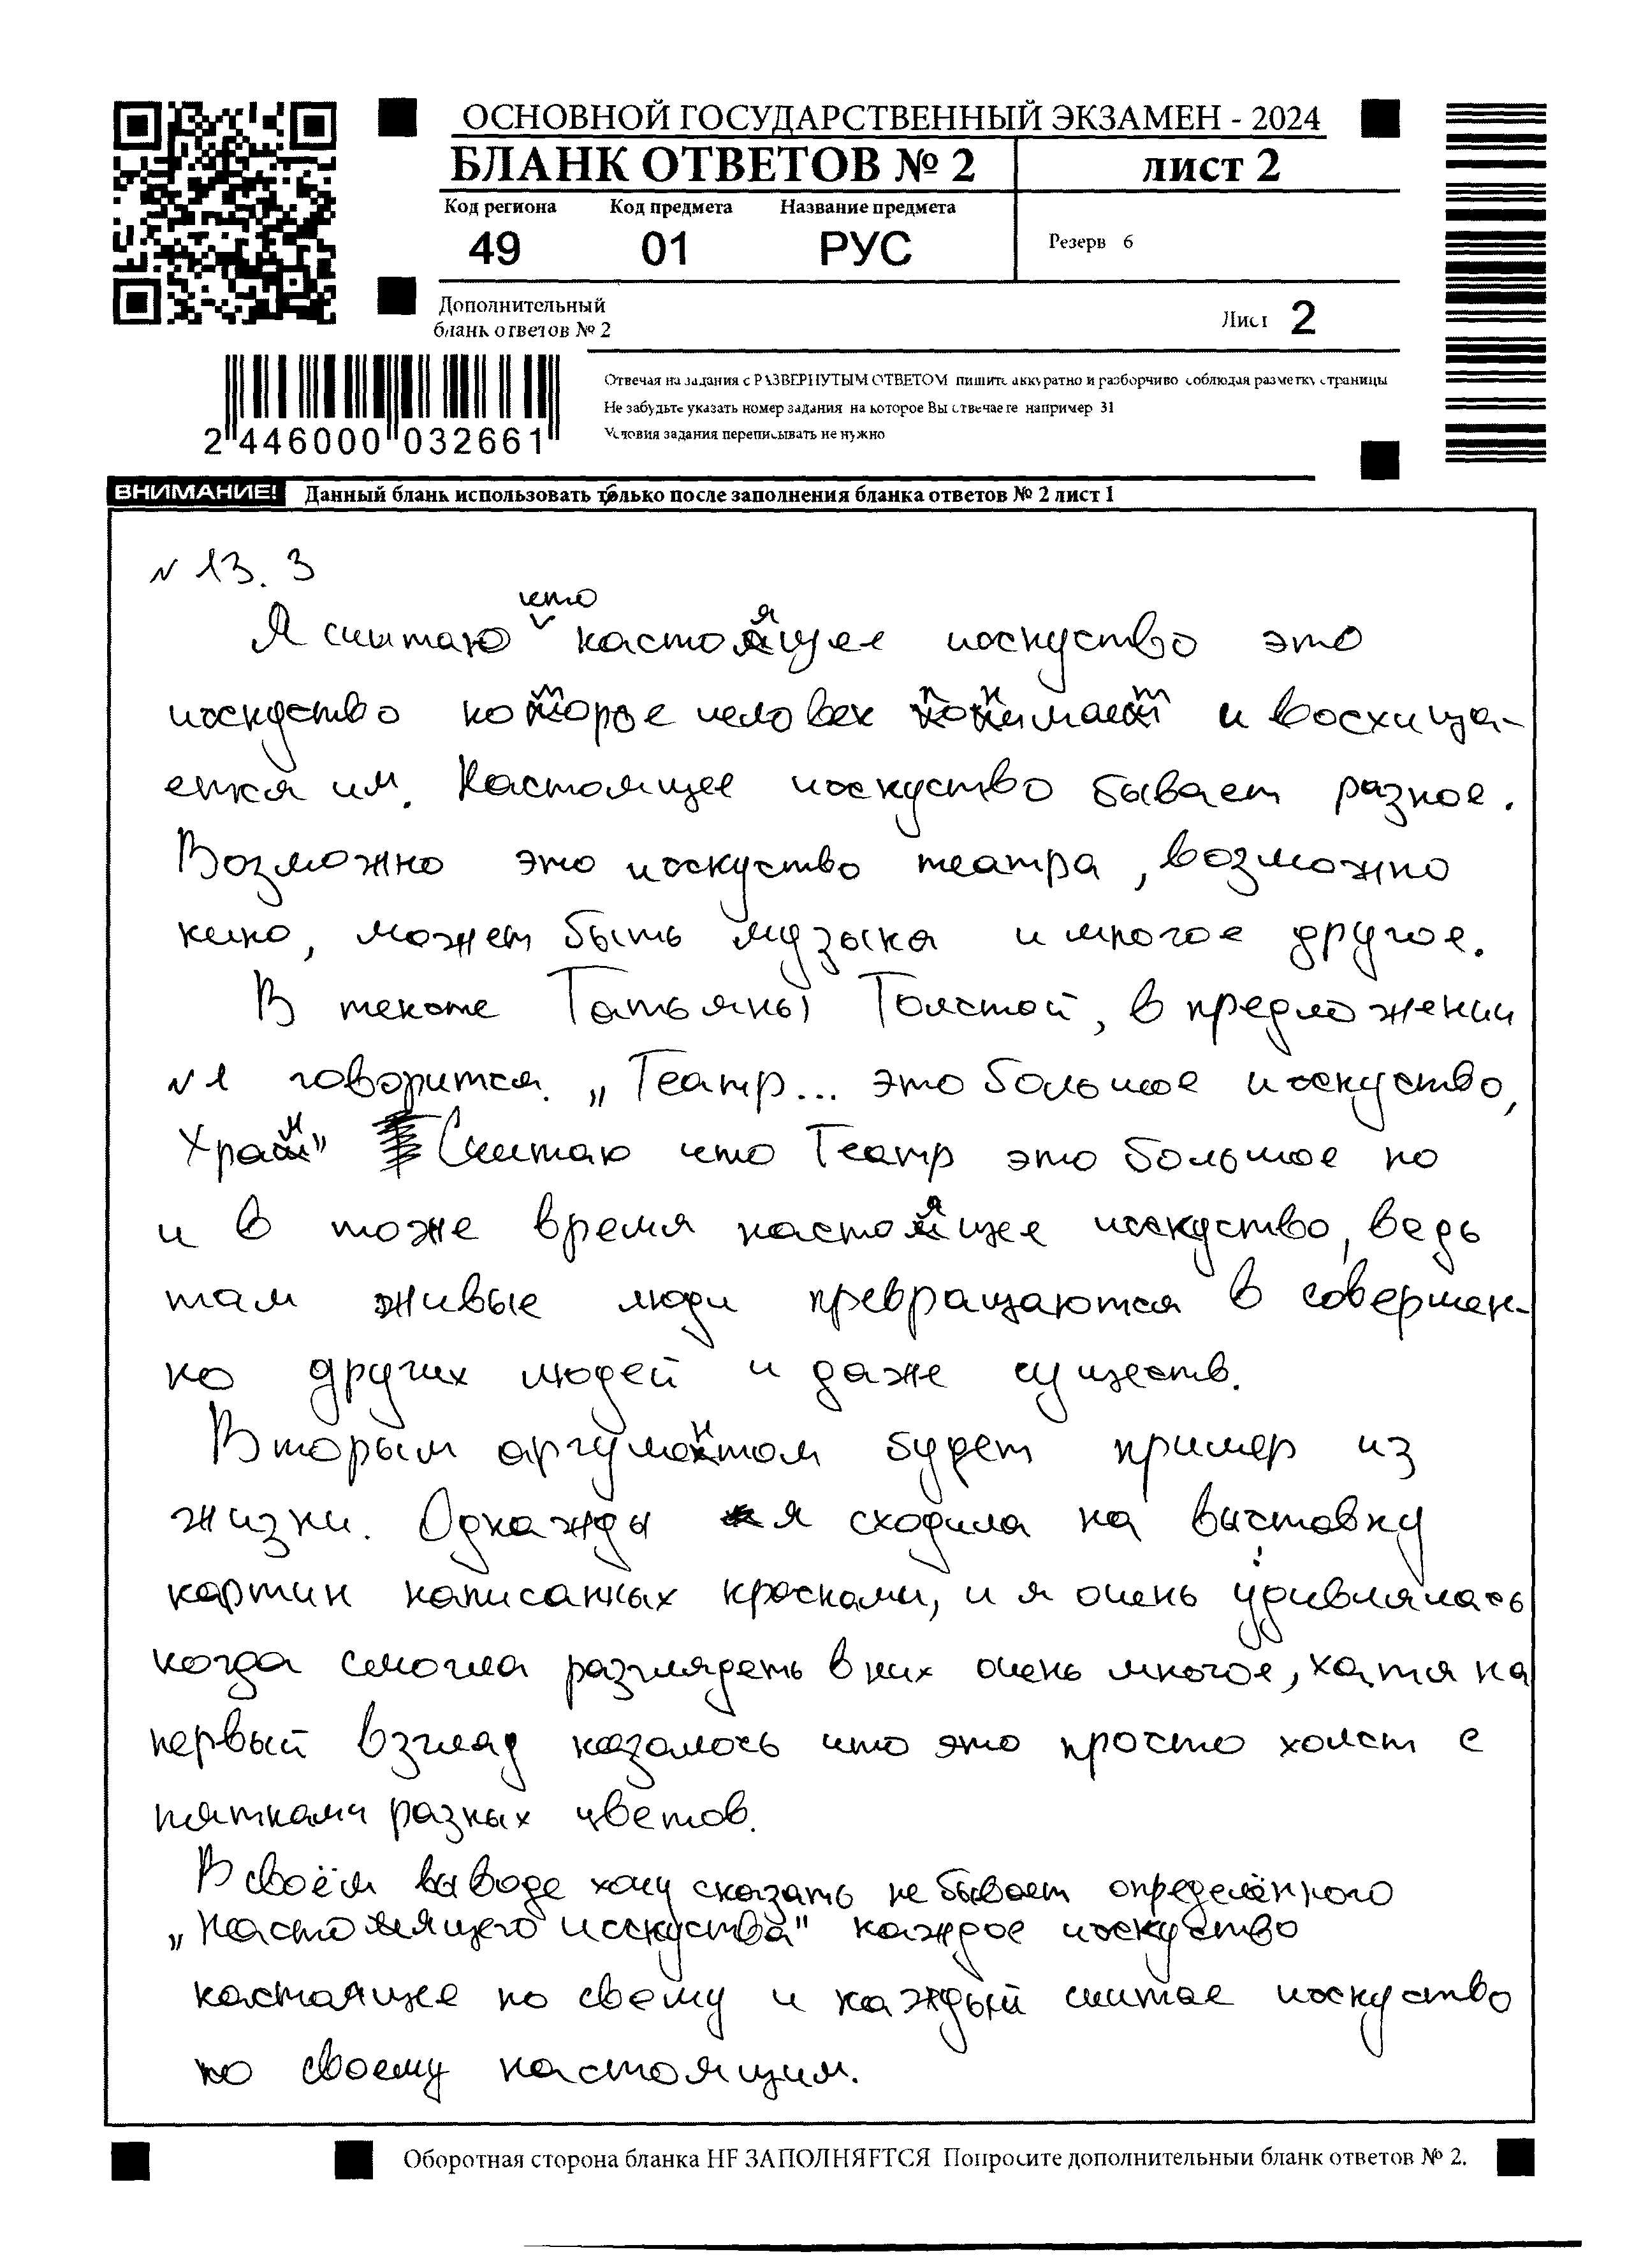 ОСНОВНОЙ ГОСУДАРСТВЕННЫЙ ЭКЗАМЕН - 2024
БЛАНК ОТВЕТОВ № 2
лист 2
Код региона Код предмета Название предмета
49 01 РУС
Резерв 6
Дополнительный
бланк ответов № 2
Лист 2
Отвечая на задания с РАЗВЕРНУТЫМ ОТВЕТОМ пишите аккуратно и разборчиво соблюдая разметку страницы
Не забудьте указать номер задания на которое Вы отвечаете например 31
Условия задания переписывать не нужно
2 446000 032661
ВНИМАНИЕ! Данный бланк использовать только после заполнения бланка ответов № 2 лист 1
N 13. 3
Я считаю что настоящее исскуство это
исскуство которое человек понимает и восхища-
ется им. Настоящее исскуство бывает разное.
Возможно это исскуство театра, возможно
кино, может быть музыка и многое другое.
В тексте Татьяны Толстой, в предложении
N1 говорится. „Театр... это большое исскуство,
Храм" Считаю что Театр это большое но
и в тоже время настоящее исскуство, ведь
там живые люди превращаются в совершен-
но других людей и даже существ.
Вторым аргументом будет пример из
жизни. Однажды я сходила на выставку
картин написанных красками, и я очень удивлялась
когда смогла разглядеть в них очень многое, хотя на
первый взгляд казалось что это просто холст с
пятнами разных цветов.
В своём выводе хочу сказать не бывает определённого
„Настоящего исскуства" каждое исскуство
настоящее по своему и каждый считае исскуство
по своему настоящим.
Оборотная сторона бланка НЕ ЗАПОЛНЯЕТСЯ Попросите дополнительный бланк ответов № 2.